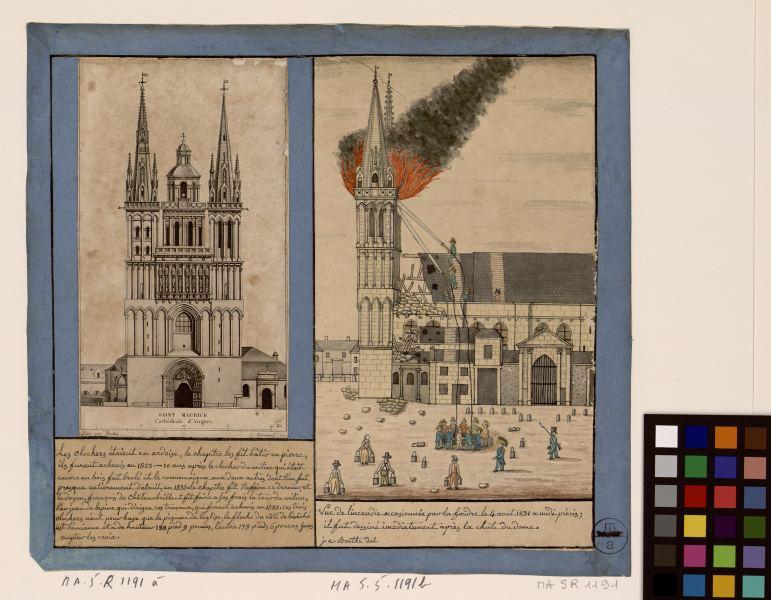 SAINT MAURICE
Cathédrale d'Angers.
Les clochers étaient en ardoise, le chapitre les fit bâtir en pierre,
ils furent achevés en 1523. 10 ans après le clocher du milieu qui était
encore en bois fut brulé et le communiqua aux deux autres dont l'un fut
presque entièrement détruit, en 1533 le chapitre fit refaire ce dernier et
le doyen françois de Châteaubriant fit faire à ses frais la tour du milieu,
clochers n'ont pour base que le pignon de l'église, la fleche du côté de l'évêché
hauteur 198 pied 9 pouces, l'autre 178 pied 6 pouces sans
compter les croix.
Vue de l'incendie occasionnée par la foudre le 4 aout 1831 a midi précis;
il fut dessiné imédiatement après la chute du dome.
j. a. Berthe del.
m
a
MA.5.R 1191 a
MA 5.5.1191 b
MA 5R 1191